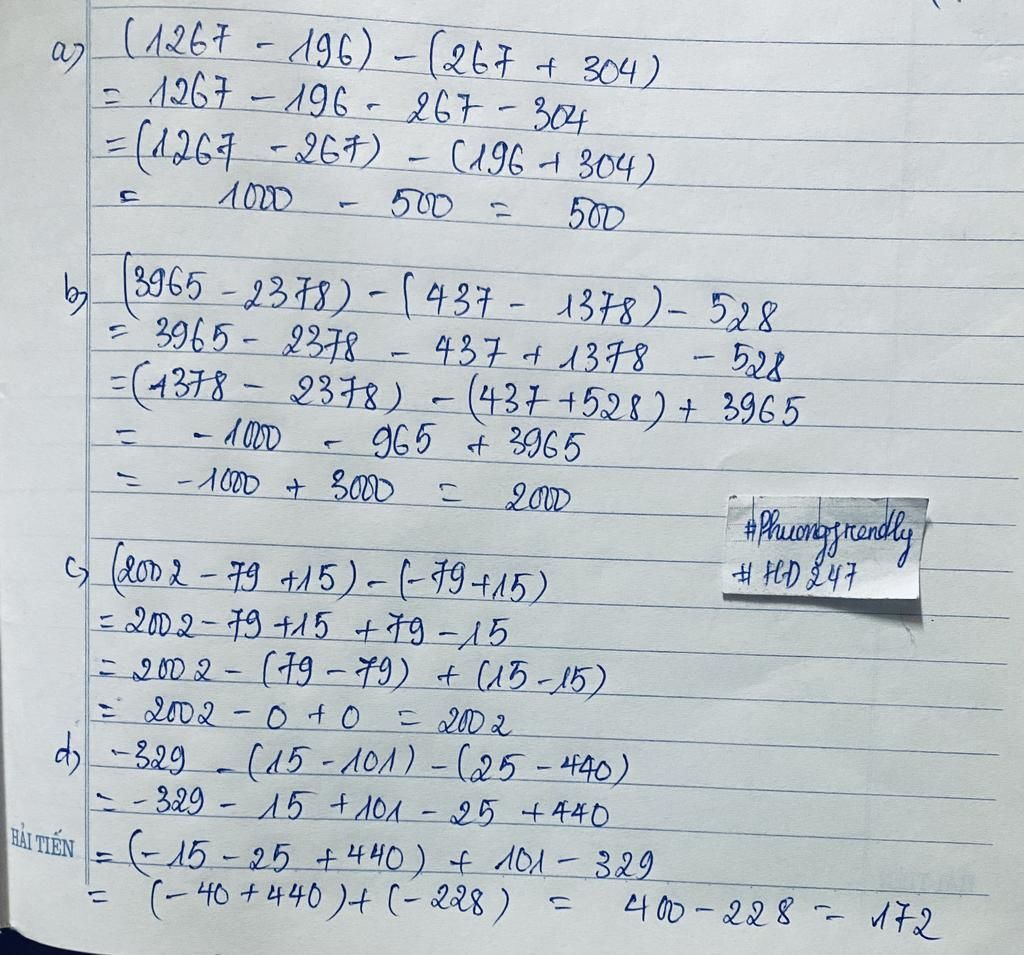 a) (1267 - 196) - (267 + 304)
= 1267 - 196 - 267 - 304
= (1267 - 267) - (196 + 304)
= 1000 - 500 = 500
b) (3965 - 2378) - (437 - 1378) - 528
= 3965 - 2378 - 437 + 1378 - 528
= (1378 - 2378) - (437 + 528) + 3965
= -1000 - 965 + 3965
= -1000 + 3000 = 2000
#Phuongfrendly
#HD247
c) (2002 - 79 + 15) - (-79 + 15)
= 2002 - 79 + 15 + 79 - 15
= 2002 - (79 - 79) + (15 - 15)
= 2002 - 0 + 0 = 2002
d) -329 - (15 - 101) - (25 - 440)
= -329 - 15 + 101 - 25 + 440
HẢI TIẾN
= (-15 - 25 + 440) + 101 - 329
= (-40 + 440) + (-228) = 400 - 228 = 172